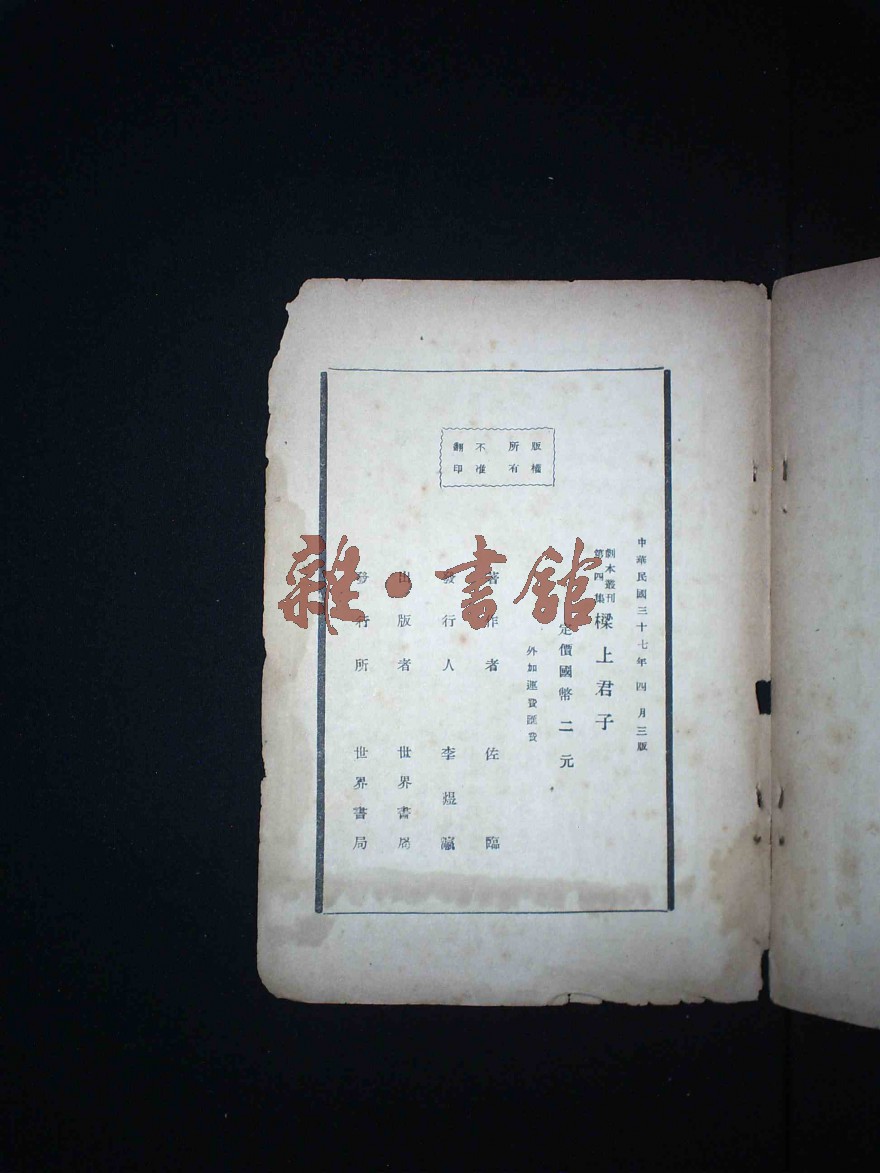 版權
所有
不准
翻印
中華民國三十七年四月三版
劇本叢刊
第四集
樑上君子
定價國幣二元
外加運費匯費
著作者 佐臨
發行人 李煜瀛
出版者 世界書局
發行所 世界書局
雜·書館